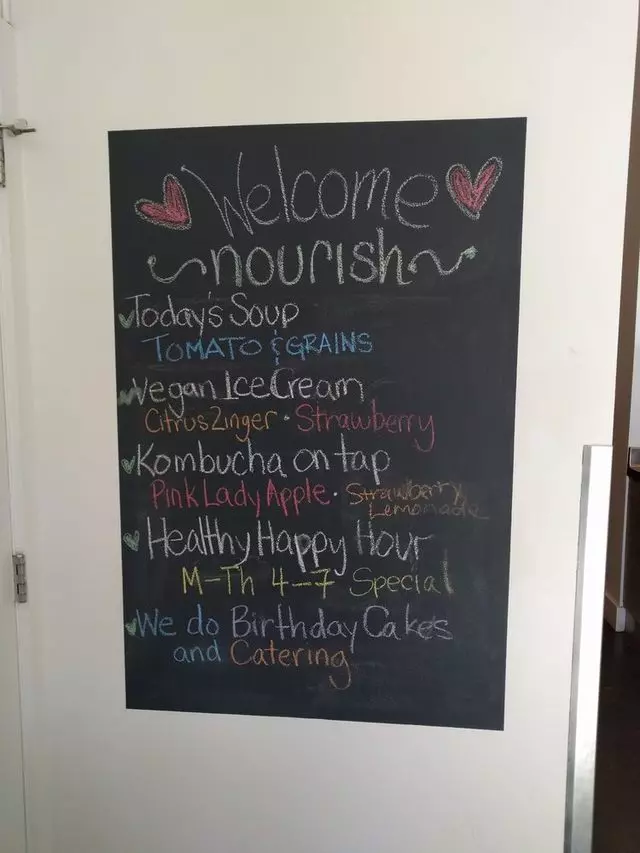 Welcome
nourish
Today's Soup
TOMATO & GRAINS
Vegan Ice Cream
Citrus Zinger • Strawberry
Kombucha on tap
Pink Lady Apple • Strawberry
Lemonade
Healthy Happy Hour
M-Th 4-7 Special
We do Birthday Cakes
and Catering